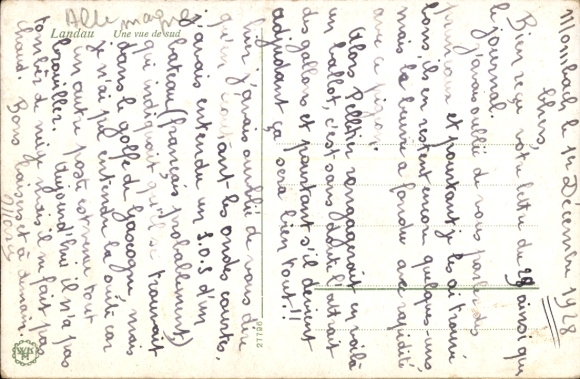 Allemagne
Landau Une vue de sud
Mombach le 14 Décembre 1928
Chers,
Bien reçu votre lettre du 28 ainsi que
le journal.
J'avais oublié de vous parler des
et pourtant je les ai trouvé
bons, ils en restent encore quelques-uns
mais le beurre a fondu avec rapidité
avec ce pigeon
Alors Pelltier rengagerait en voilà
un ballot, c'est sans doute l'attrait
des gallons et pourtant s'il devient
adjudant ça sera bien tout!!
hier j'avais oublié de vous dire
qu'en écoutant les ondes courtes,
j'avais entendu un S.O.S d'un
bateau (français probablement)
qui indiquait qu'il se trouvait
dans le golfe de Gascogne, mais
je n'ai pu entendre la suite car
un autre poste est venu tout
brouiller. Aujourd'hui il n'a pas
tombé de neige mais il ne fait pas
chaud. Bons baisers et à demain.
27796